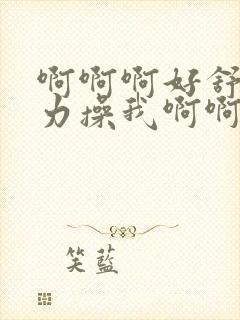 啊啊啊好舒
力操我啊啊
笑藍